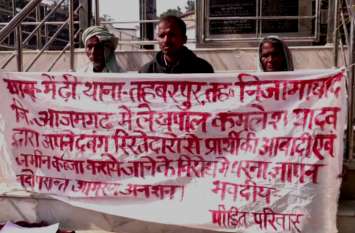 ग्राम-मेंदी थाना-तहबरपुर, तह० निजामाबाद
जि. आजमगढ़ में लेखपाल कमलेश यादव
द्वारा अपने दबंग रिश्तेदारों से प्रार्थी की आबादी एवं
जमीन कब्जा कराये जाने के विरोध में धरना, ज्ञापन
आमरण अनशन।
भवदीय
पीड़ित परिवार